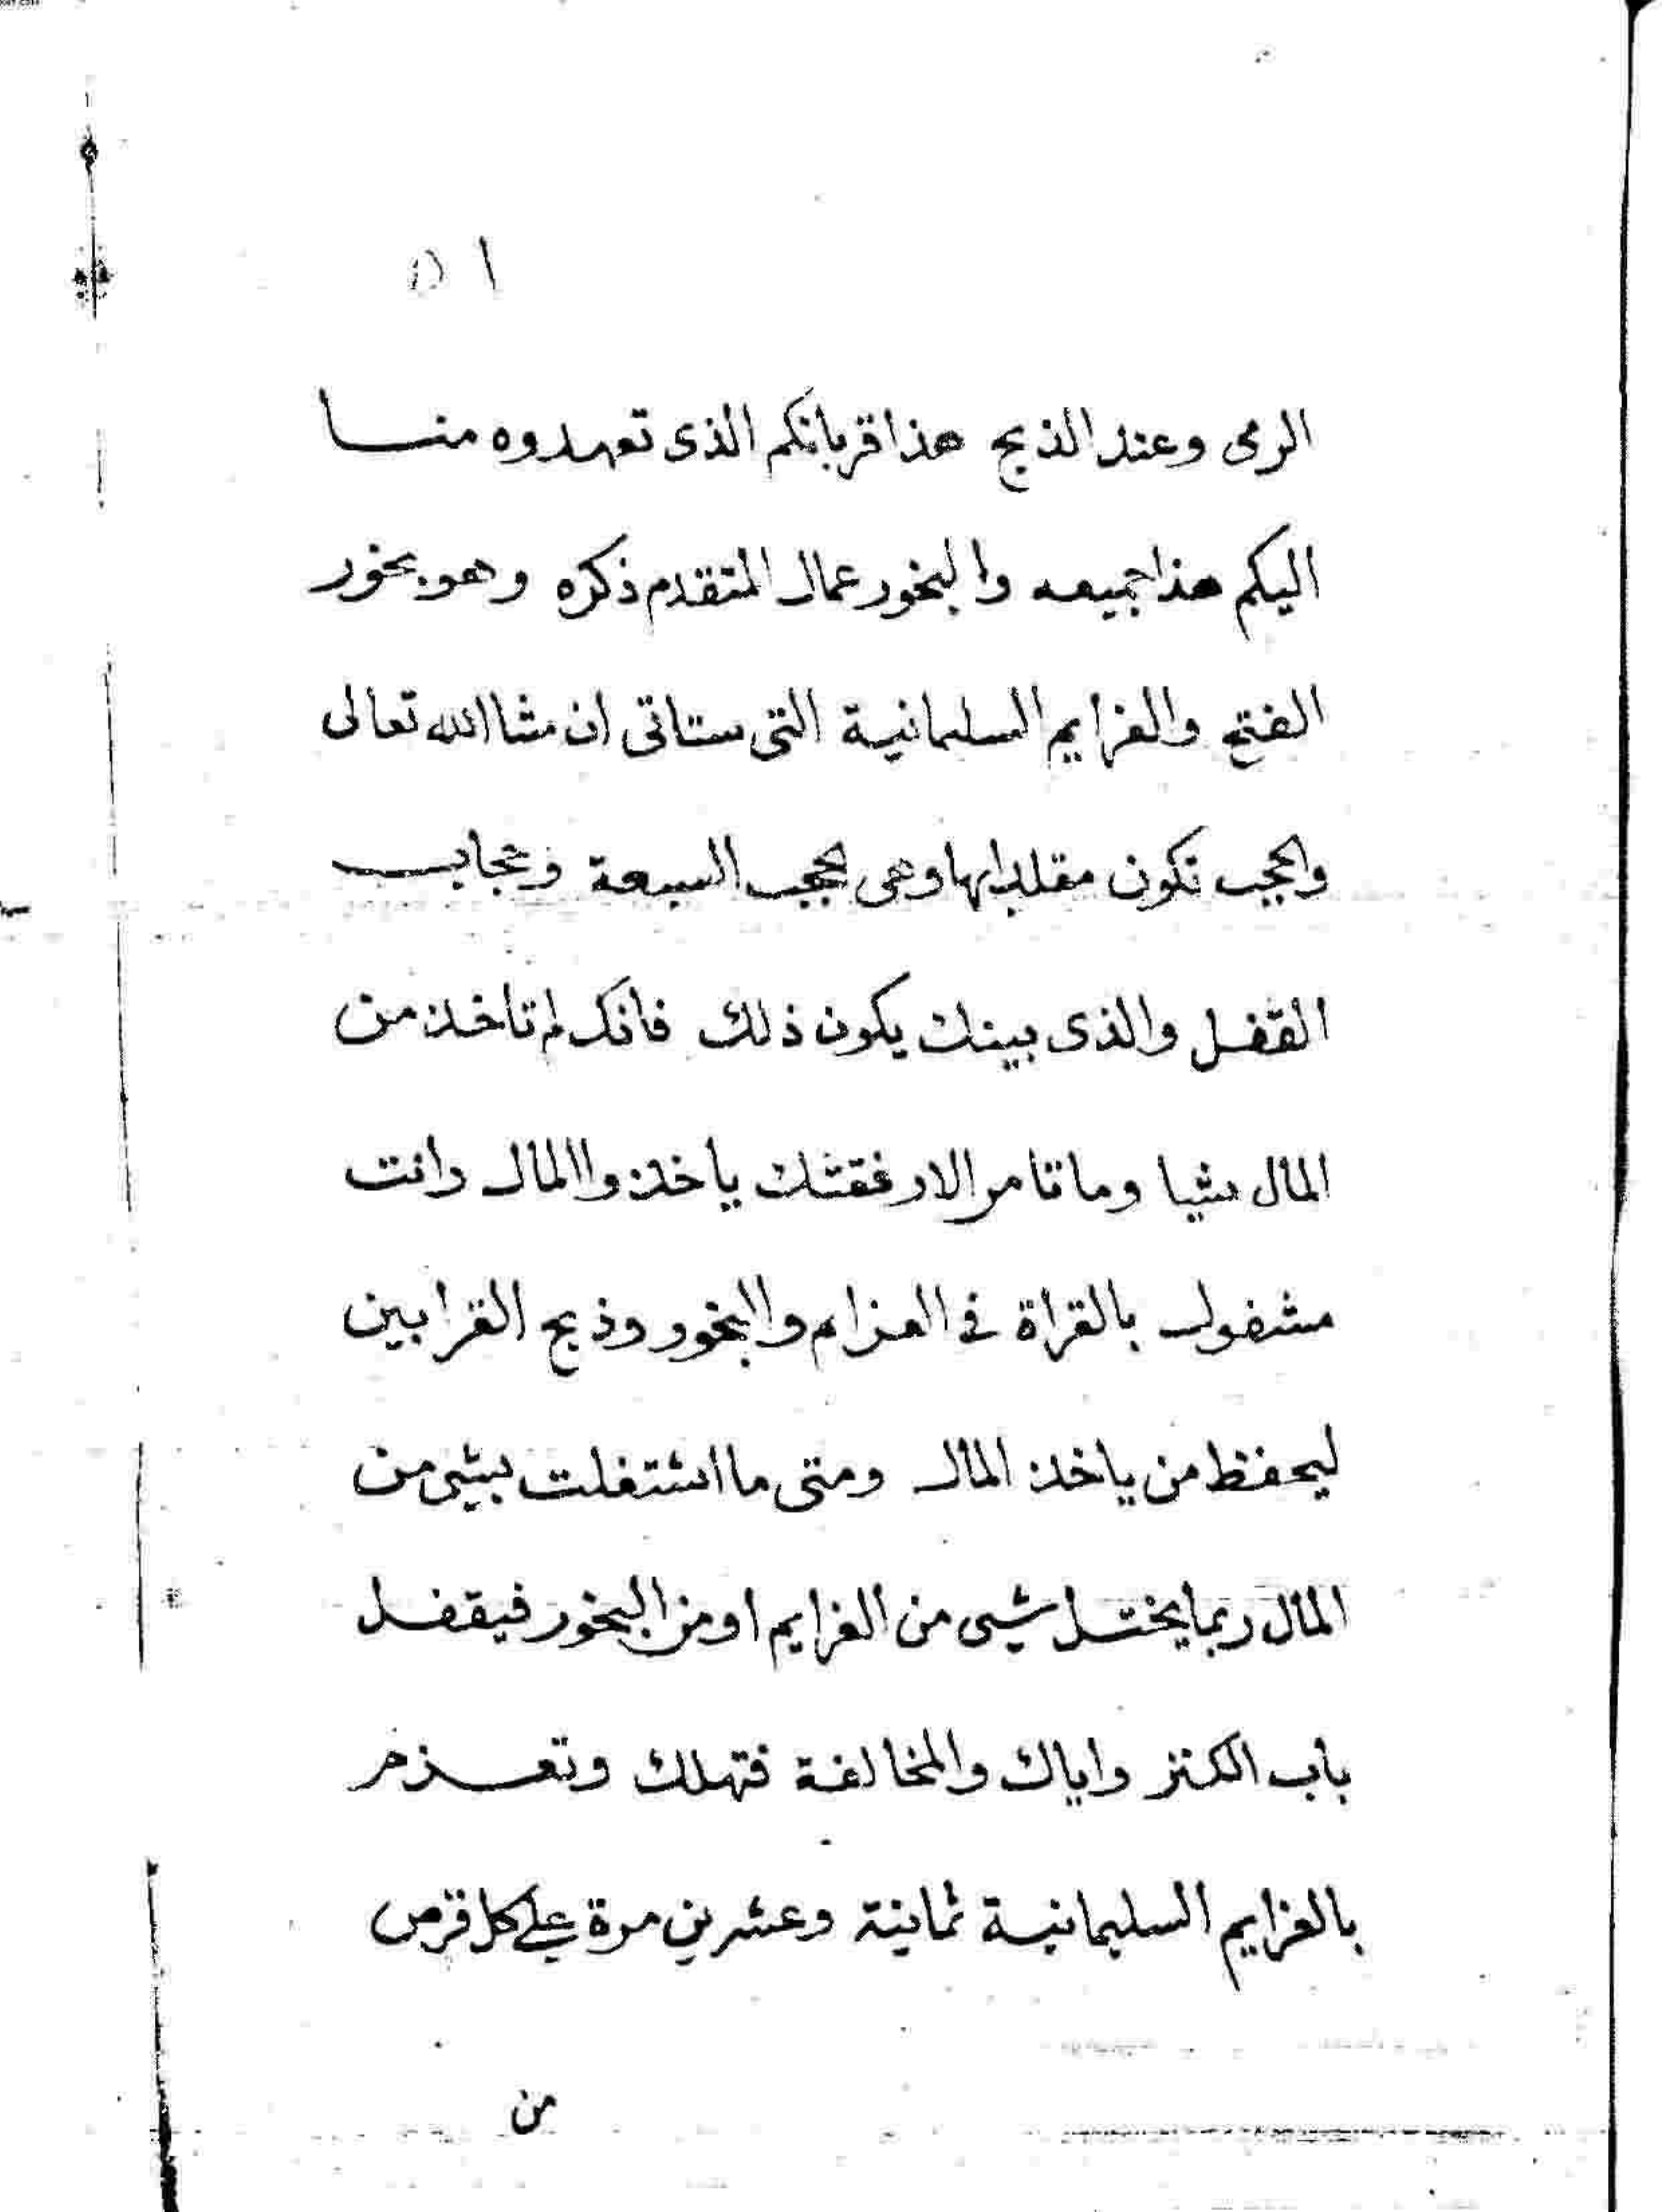 الرمى وعند الذبح هذا قربانكم الذى تعهدوه منا
اليكم هذا جميعه والبخور عمال المتقدم ذكره وهو بخور
الفتح والعزايم السليمانية التى ستاتى ان شا الله تعالى
والحجب تكون مقلدابها وهى حجب السبعة وحجاب
القفل والذى بينك يكون ذلك فانك لم تاخذ من
المال شيا وما تامر الا رفقتك ياخذوا المال وانت
مشغول بالقراة فى العزايم والبخور وذبح القرابين
ليحفظ من ياخذ المال ومتى ما اشتغلت بشى من
المال ربما يختل شيى من العزايم او من البخور فيقفل
باب الكنز واياك والمخالفة فتهلك وتعزم
بالعزايم السليمانية ثمانية وعشرين مرة على كل قرص
من